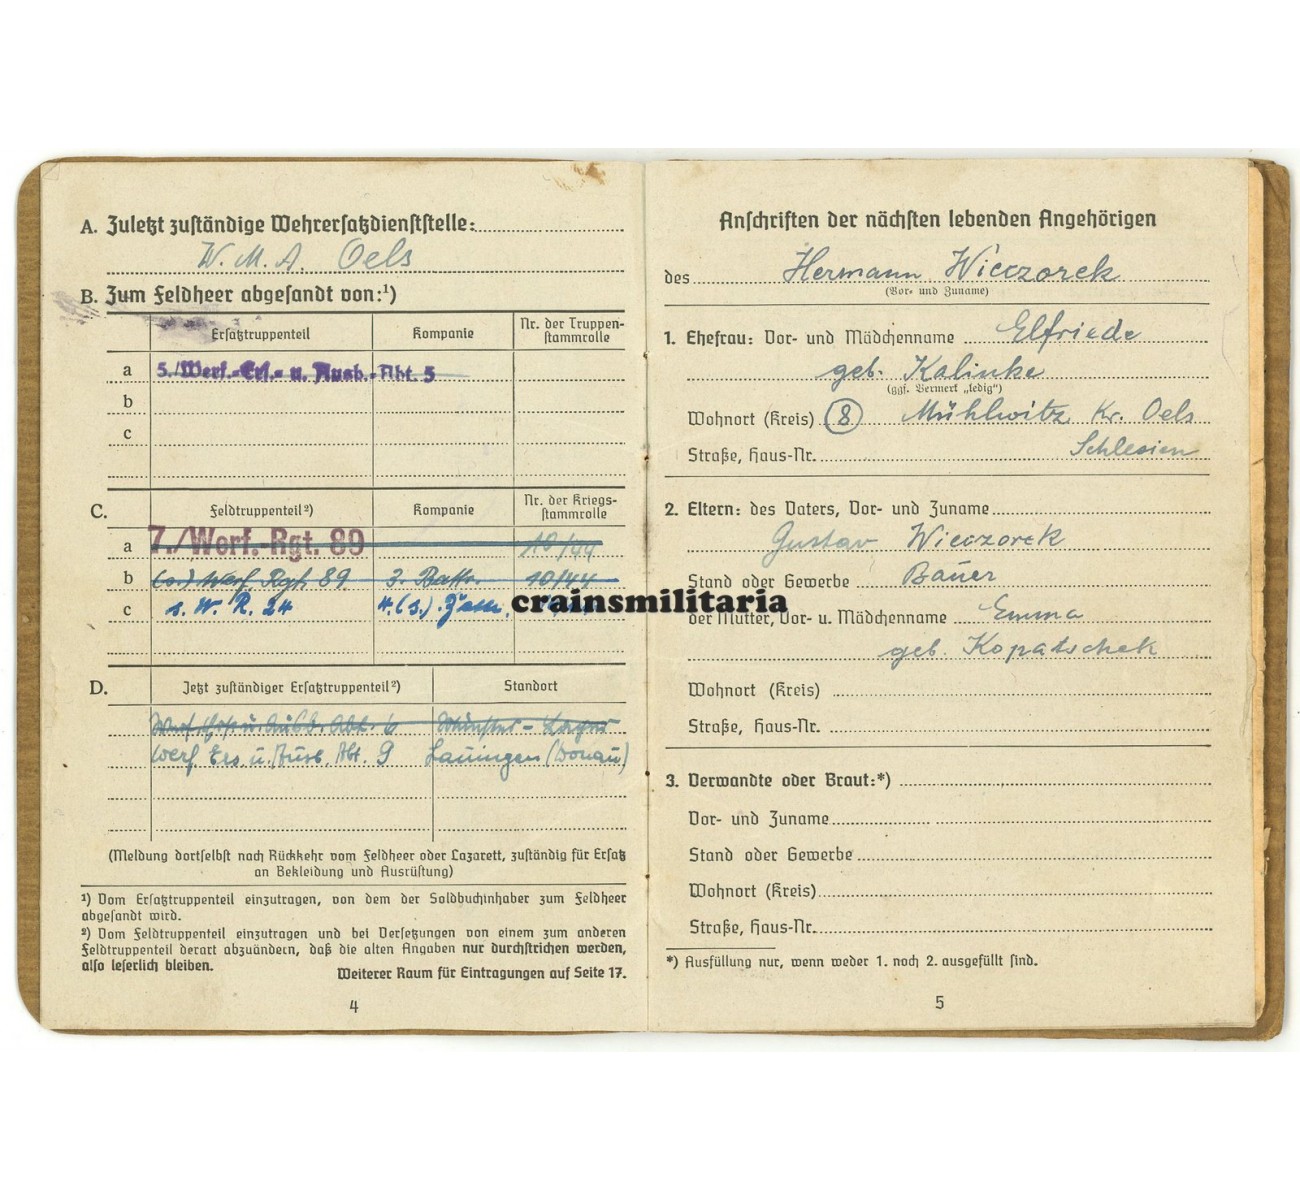 A. Zuletzt zuständige Wehrersatzdienststelle:
W. M. A. Oels
B. Zum Feldheer abgesandt von:¹)
Ersatztruppenteil Kompanie Nr. der Truppen-
stammrolle
a 5./Werf.-Ers.- u. Ausb.-Abt. 5
b
c
C. Feldtruppenteil²) Kompanie Nr. der Kriegs-
stammrolle
a 7./Werf.-Rgt. 89 10/44
b (s.) Werf. Rgt. 89 3. Battr. 10/44
c s. W. R. 24 4. (s.)
crainsmilitaria
D. Jetzt zuständiger Ersatztruppenteil²) Standort
Werf. Ers. u. Ausb. Abt. 6 Munster-Lager
Werf. Ers. u. Ausb. Abt. 9 Lauingen (Donau)
(Meldung dortselbst nach Rückkehr vom Feldheer oder Lazarett, zuständig für Ersatz
an Bekleidung und Ausrüstung)
¹) Vom Ersatztruppenteil einzutragen, von dem der Soldbuchinhaber zum Feldheer
abgesandt wird.
²) Vom Feldtruppenteil einzutragen und bei Versetzungen von einem zum anderen
Feldtruppenteil derart abzuändern, daß die alten Angaben nur durchstrichen werden,
also leserlich bleiben.
Weiterer Raum für Eintragungen auf Seite 17.
4
Anschriften der nächsten lebenden Angehörigen
des Hermann Wieczorek
(Vor- und Zuname)
1. Ehefrau: Vor- und Mädchenname Elfriede
geb. Kalinke
(ggf. Vermerk „ledig")
Wohnort (Kreis) (8) Mühlwitz Kr. Oels
Straße, Haus-Nr. Schlesien
2. Eltern: des Vaters, Vor- und Zuname
Gustav Wieczorek
Stand oder Gewerbe Bauer
der Mutter, Vor- u. Mädchenname Emma
geb. Kopatschek
Wohnort (Kreis)
Straße, Haus-Nr.
3. Verwandte oder Braut:*)
Vor- und Zuname
Stand oder Gewerbe
Wohnort (Kreis)
Straße, Haus-Nr.
*) Ausfüllung nur, wenn weder 1. noch 2. ausgefüllt sind.
5